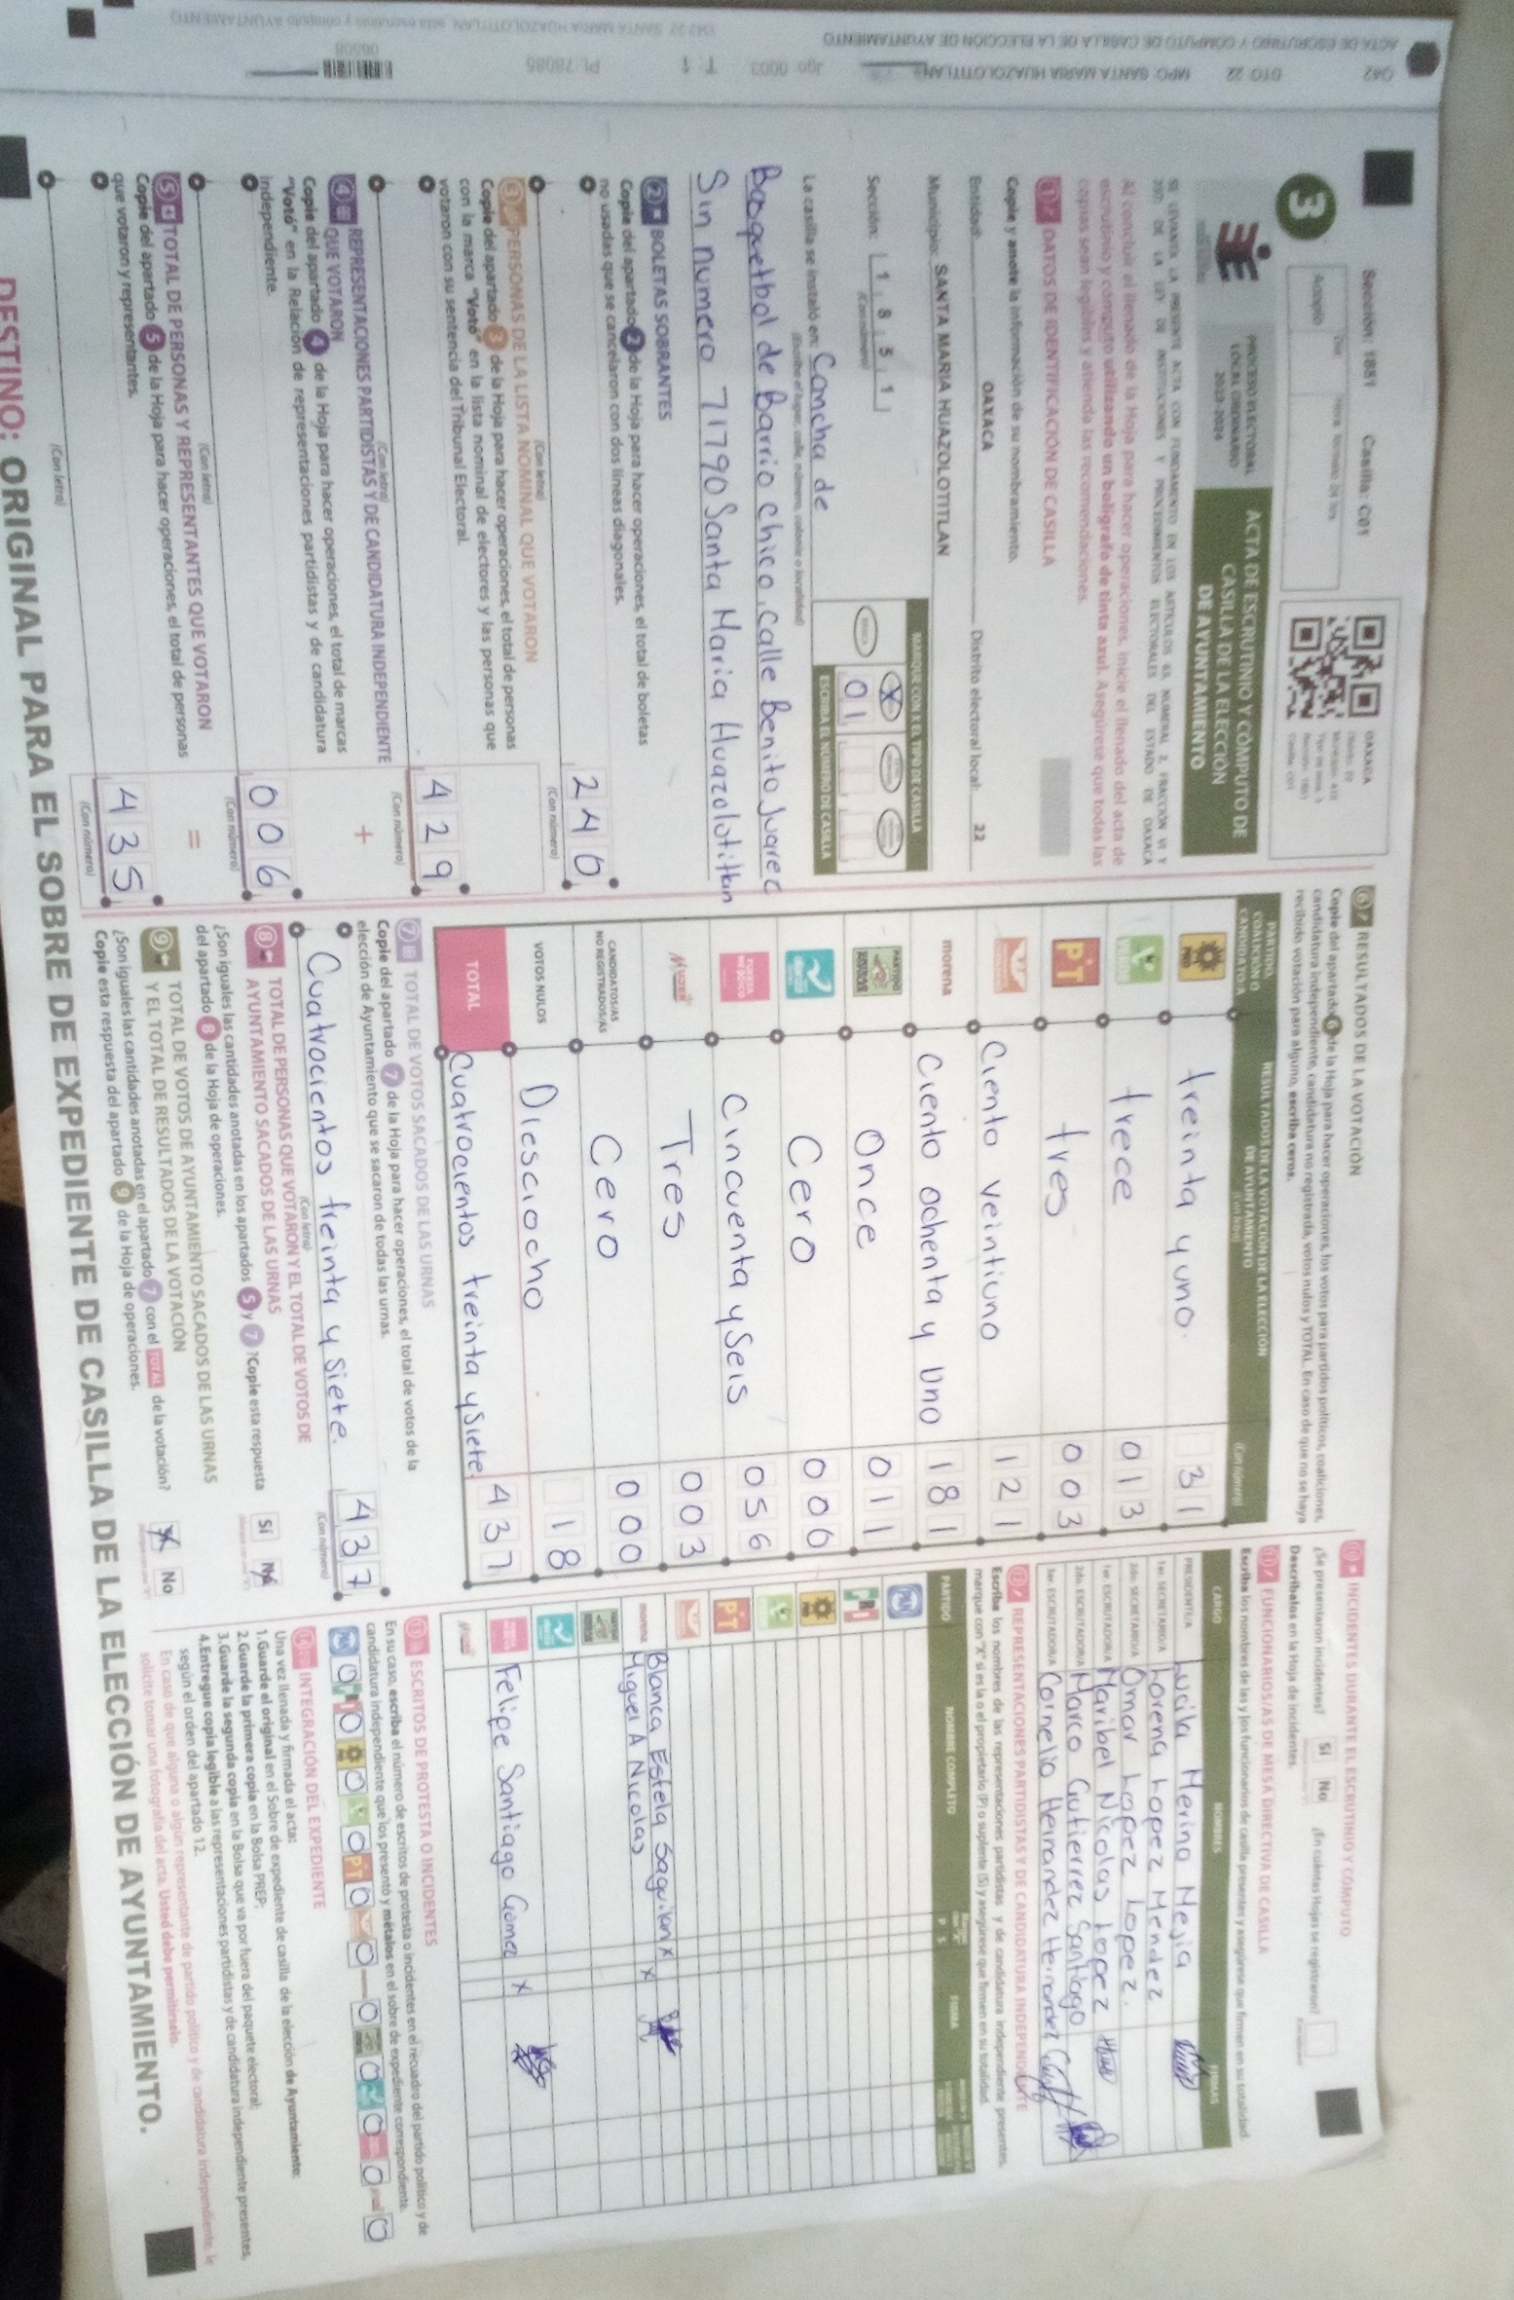 Sección: 1851 Casilla: C01
3
PROCESO ELECTORAL
LOCAL ORDINARIO
2023-2024
ACTA DE ESCRUTINIO Y CÓMPUTO DE
CASILLA DE LA ELECCIÓN
DE AYUNTAMIENTO
OAXACA
Al concluir el llenado de la Hoja para hacer operaciones, inicie el llenado del acta de
escrutinio y cómputo utilizando un bolígrafo de tinta azul. Asegúrese que todas las
copias sean legibles y atienda las recomendaciones.
1 DATOS DE IDENTIFICACIÓN DE CASILLA
Copie y anote la información de su nombramiento.
Entidad: OAXACA Distrito electoral local: 22
Municipio: SANTA MARIA HUAZOLOTITLAN
Sección: 1 8 5 1
MARQUE CON X EL TIPO DE CASILLA
X
ESCRIBA EL NÚMERO DE CASILLA
01
La casilla se instaló en: Cancha de
(Escriba el lugar, calle, número, colonia o localidad)
Basquetbol de Barrio chico, calle Benito Juarez
Sin numero 71790 Santa Maria Huazolotitlan
2 BOLETAS SOBRANTES
Copie del apartado 2 de la Hoja para hacer operaciones, el total de boletas
no usadas que se cancelaron con dos líneas diagonales.
240
(Con letra) (Con número)
3 PERSONAS DE LA LISTA NOMINAL QUE VOTARON
Copie del apartado 3 de la Hoja para hacer operaciones, el total de personas
con la marca "Votó" en la lista nominal de electores y las personas que
votaron con su sentencia del Tribunal Electoral.
429
(Con letra) (Con número)
4 REPRESENTACIONES PARTIDISTAS Y DE CANDIDATURA INDEPENDIENTE
QUE VOTARON
+
Copie del apartado 4 de la Hoja para hacer operaciones, el total de marcas
"Votó" en la Relación de representaciones partidistas y de candidatura
independiente.
006
(Con letra) (Con número)
5 TOTAL DE PERSONAS Y REPRESENTANTES QUE VOTARON
=
Copie del apartado 5 de la Hoja para hacer operaciones, el total de personas
que votaron y representantes.
435
(Con letra) (Con número)
6 RESULTADOS DE LA VOTACIÓN
Copie del apartado 6 de la Hoja para hacer operaciones, los votos para partidos políticos, coaliciones,
candidatura independiente, candidatura no registrada, votos nulos y TOTAL. En caso de que no se haya
recibido votación para alguno, escriba ceros.
PARTIDO,
COALICIÓN O
CANDIDATO/A
RESULTADOS DE LA VOTACIÓN DE LA ELECCIÓN
DE AYUNTAMIENTO
(Con letra) (Con número)
PRD treinta y uno. 31
VERDE trece 013
PT tres 003
Ciento veintiuno 121
morena Ciento ochenta y Uno 181
Once 011
Cero 000
Cincuenta y Seis 056
Tres 003
CANDIDATOS/AS
NO REGISTRADOS/AS Cero 000
VOTOS NULOS Diesciocho 18
TOTAL Cuatrocientos treinta y Siete. 437
7 TOTAL DE VOTOS SACADOS DE LAS URNAS
Copie del apartado 7 de la Hoja para hacer operaciones, el total de votos de la
elección de Ayuntamiento que se sacaron de todas las urnas.
Cuatrocientos treinta y Siete. 437
(Con letra) (Con número)
8 TOTAL DE PERSONAS QUE VOTARON Y EL TOTAL DE VOTOS DE
AYUNTAMIENTO SACADOS DE LAS URNAS
¿Son iguales las cantidades anotadas en los apartados 5 y 7? Copie esta respuesta
del apartado 8 de la Hoja de operaciones.
Sí No
9 TOTAL DE VOTOS DE AYUNTAMIENTO SACADOS DE LAS URNAS
Y EL TOTAL DE RESULTADOS DE LA VOTACIÓN
¿Son iguales las cantidades anotadas en el apartado 7 con el TOTAL de la votación?
Copie esta respuesta del apartado 9 de la Hoja de operaciones.
No
10 INCIDENTES DURANTE EL ESCRUTINIO Y CÓMPUTO
¿Se presentaron incidentes? Sí No ¿En cuántas Hojas se registraron?
Descríbalos en la Hoja de incidentes.
11 FUNCIONARIOS/AS DE MESA DIRECTIVA DE CASILLA
Escriba los nombres de las y los funcionarios de casilla presentes y asegúrese que firmen en su totalidad.
CARGO NOMBRES FIRMAS
PRESIDENTE/A Lucila Merino Mejia
1er. SECRETARIO/A Lorena Lopez Mendez
2do. SECRETARIO/A Omar Lopez Lopez.
1er. ESCRUTADOR/A Maribel Nicolas Lopez
2do. ESCRUTADOR/A Marco Gutierrez Santiago
3er. ESCRUTADOR/A Cornelio Hernandez Hernandez
12 REPRESENTACIONES PARTIDISTAS Y DE CANDIDATURA INDEPENDIENTE
Escriba los nombres de las representaciones partidistas y de candidatura independiente presentes,
marque con "X" si es la o el propietario (P) o suplente (S) y asegúrese que firmen en su totalidad.
PARTIDO NOMBRE COMPLETO P S FIRMA
PAN
PRI
PRD
PT
morena Blanca Estela Saguilan X
Miguel A Nicolas X
Felipe Santiago Gomez X
13 ESCRITOS DE PROTESTA O INCIDENTES
En su caso, escriba el número de escritos de protesta o incidentes en el recuadro del partido político y de
candidatura independiente que los presentó y métalos en el sobre de expediente correspondiente.
14 INTEGRACIÓN DEL EXPEDIENTE
Una vez llenada y firmada el acta:
1.Guarde el original en el Sobre de expediente de casilla de la elección de Ayuntamiento;
2.Guarde la primera copia en la Bolsa PREP;
3.Guarde la segunda copia en la Bolsa que va por fuera del paquete electoral;
4.Entregue copia legible a las representaciones partidistas y de candidatura independiente presentes,
según el orden del apartado 12.
En caso de que alguna o algún representante de partido político y de candidatura independiente, le
solicite tomar una fotografía del acta. Usted debe permitírselo.
DESTINO: ORIGINAL PARA EL SOBRE DE EXPEDIENTE DE CASILLA DE LA ELECCIÓN DE AYUNTAMIENTO.
ACTA DE ESCRUTINIO Y CÓMPUTO DE CASILLA DE LA ELECCIÓN DE AYUNTAMIENTO
DTO 22 MPO: SANTA MARIA HUAZOLOTITLAN
Jgo 0003 T: 1 Pl. 78085